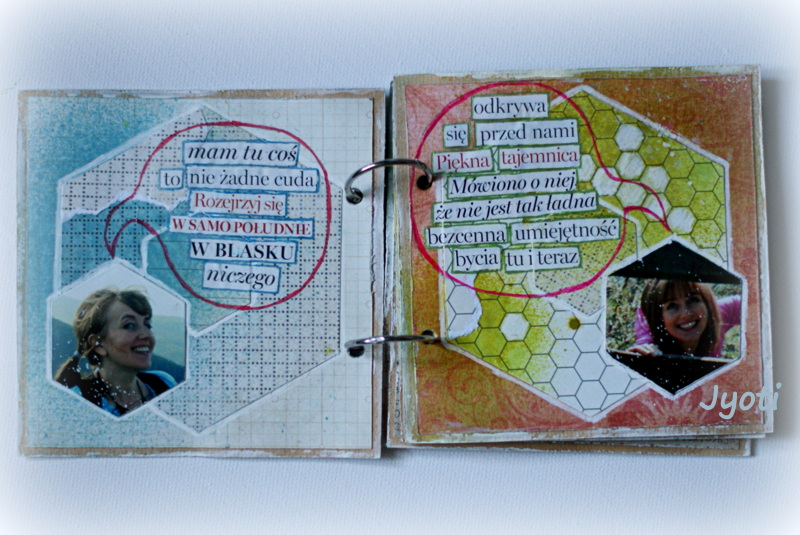 mam tu coś
to nie żadne cuda
Rozejrzyj się
W SAMO POŁUDNIE
W BLASKU
niczego
odkrywa
się przed nami
Piękna tajemnica
Mówiono o niej
że nie jest tak ładna
bezcenna umiejętność
bycia tu i teraz
Jyoti